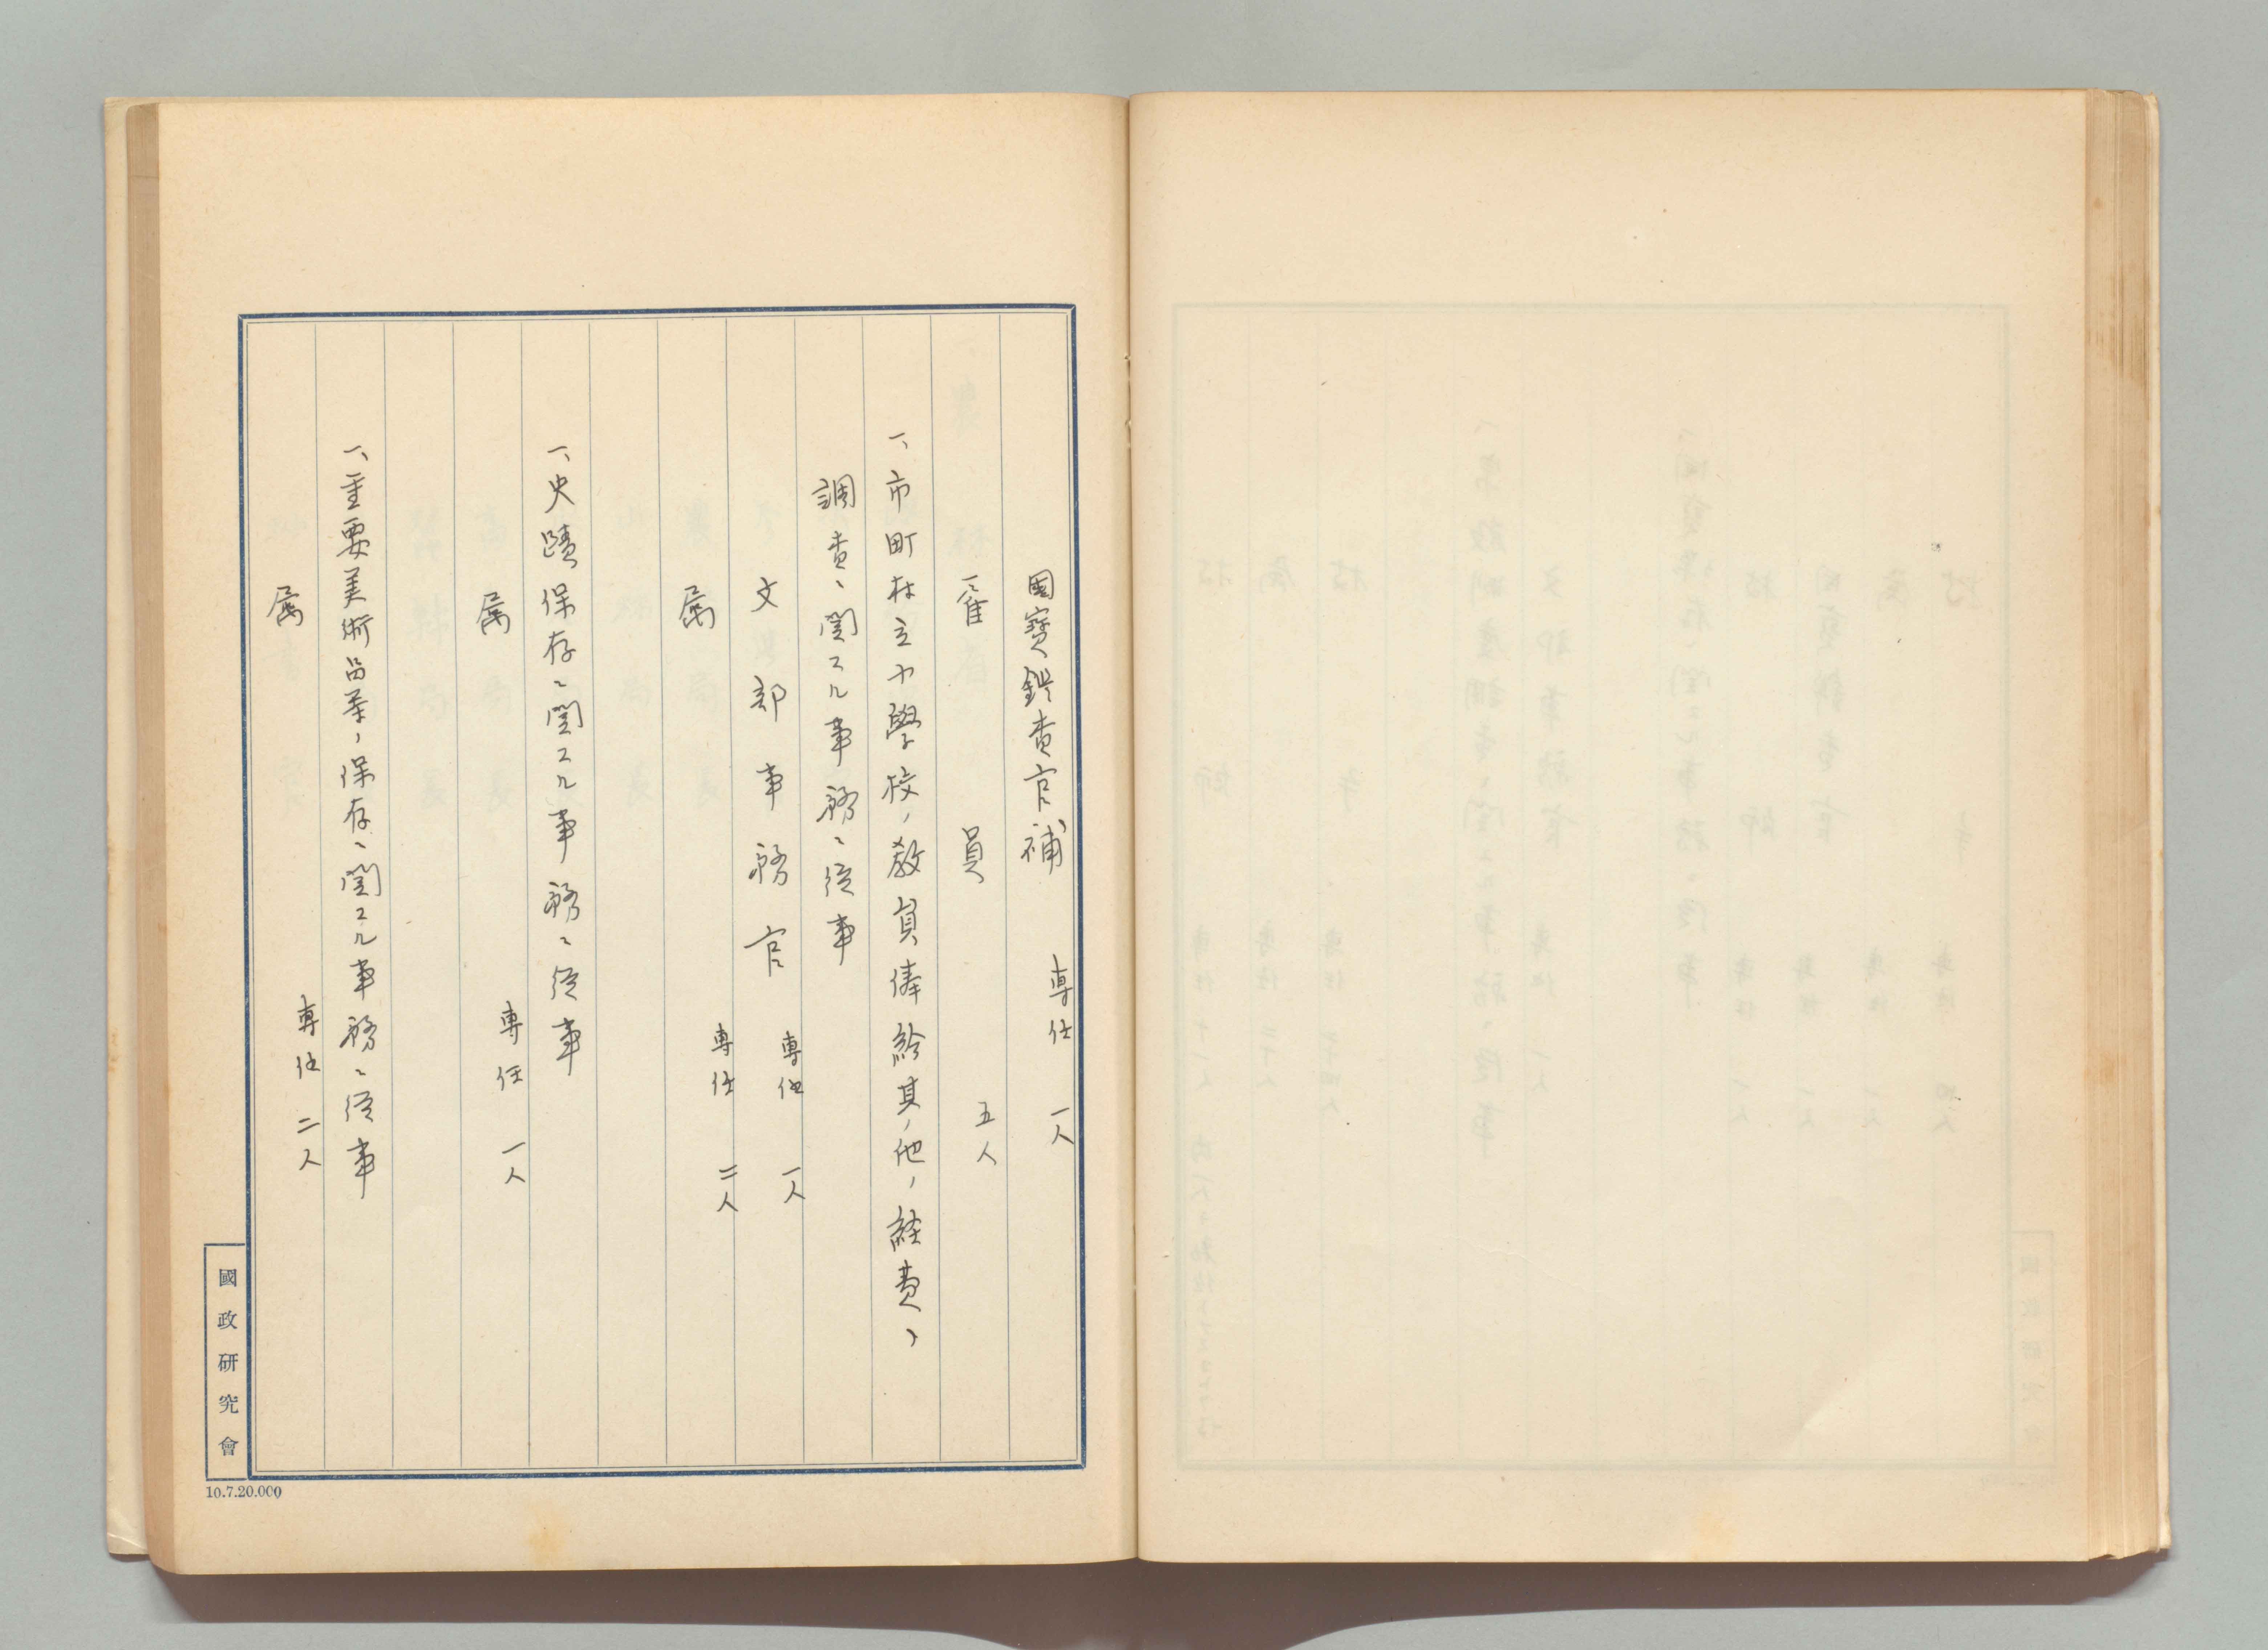 國寶鑑査官補 専任 一人
雇員 五人
一、市町村立小學校ノ教員俸給其ノ他ノ経費ノ
調査ニ関スル事務ニ従事
文部事務官 専任 一人
属 専任 二人
一、史蹟保存ニ関スル事務ニ従事
属 専任 一人
一、重要美術品等ノ保存ニ関スル事務ニ従事
属 専任 二人
國政研究會
10.7.20.000